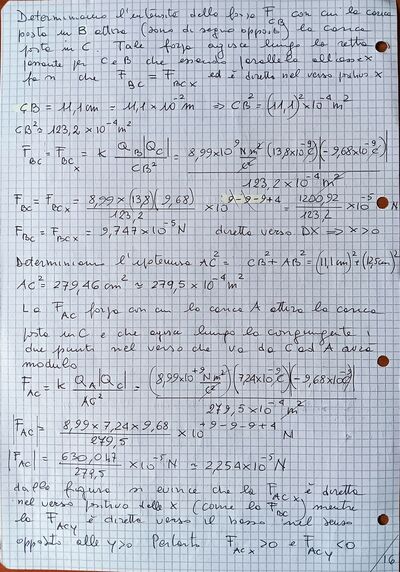 Determiniamo l'intensità della forza F_CB con cui la carica
posta in B attira (sono di segno opposto) la carica
posta in C. Tale forza agisce lungo la retta
passante per C e B che essendo parallela all'asse x
fa sì che F_BC = F_BCX ed è diretta nel verso positivo x
CB = 11,1 cm = 11,1 × 10^-2 m ⇒ CB^2 = (11,1)^2 × 10^-4 m^2
CB^2 = 123,2 × 10^-4 m^2
F_BC = F_BCX = k Q_B|Q_C| / CB^2 = (8,99×10^9 N m^2/C^2)(13,8×10^-9 C)(-9,68×10^-9 C) / 123,2 × 10^-4 m^2
F_BC = F_BCX = 8,99 × (13,8)(9,68) / 123,2 × 10^9-9-9+4 = 1200,92 / 123,2 × 10^-5 N
F_BC = F_BCX = 9,747 × 10^-5 N diretta verso DX ⇒ x>0
Determiniamo l'ipotenusa AC^2 = CB^2 + AB^2 = (11,1 cm)^2 + (12,5 cm)^2
AC^2 = 279,46 cm^2 ≃ 279,5 × 10^-4 m^2
La F_AC forza con cui la carica A attira la carica
posta in C e che agisce lungo la congiungente i
due punti nel verso che va da C ad A avrà
modulo
F_AC = k Q_A|Q_C| / AC^2 = (8,99×10^+9 N m^2/C^2)(7,24×10^-9 C)(-9,68×10^-9 C) / 279,5 × 10^-4 m^2
|F_AC| = 8,99 × 7,24 × 9,68 / 279,5 × 10^+9-9-9+4 N
|F_AC| = 630,047 / 279,5 × 10^-5 N ≃ 2,254 × 10^-5 N
dalla figura si evince che la F_ACX è diretta
nel verso positivo delle x (come la F_BC) mentre
la F_ACY è diretta verso il basso nel senso
opposto alle y>0 Pertanto F_ACX >0 e F_ACY <0
16